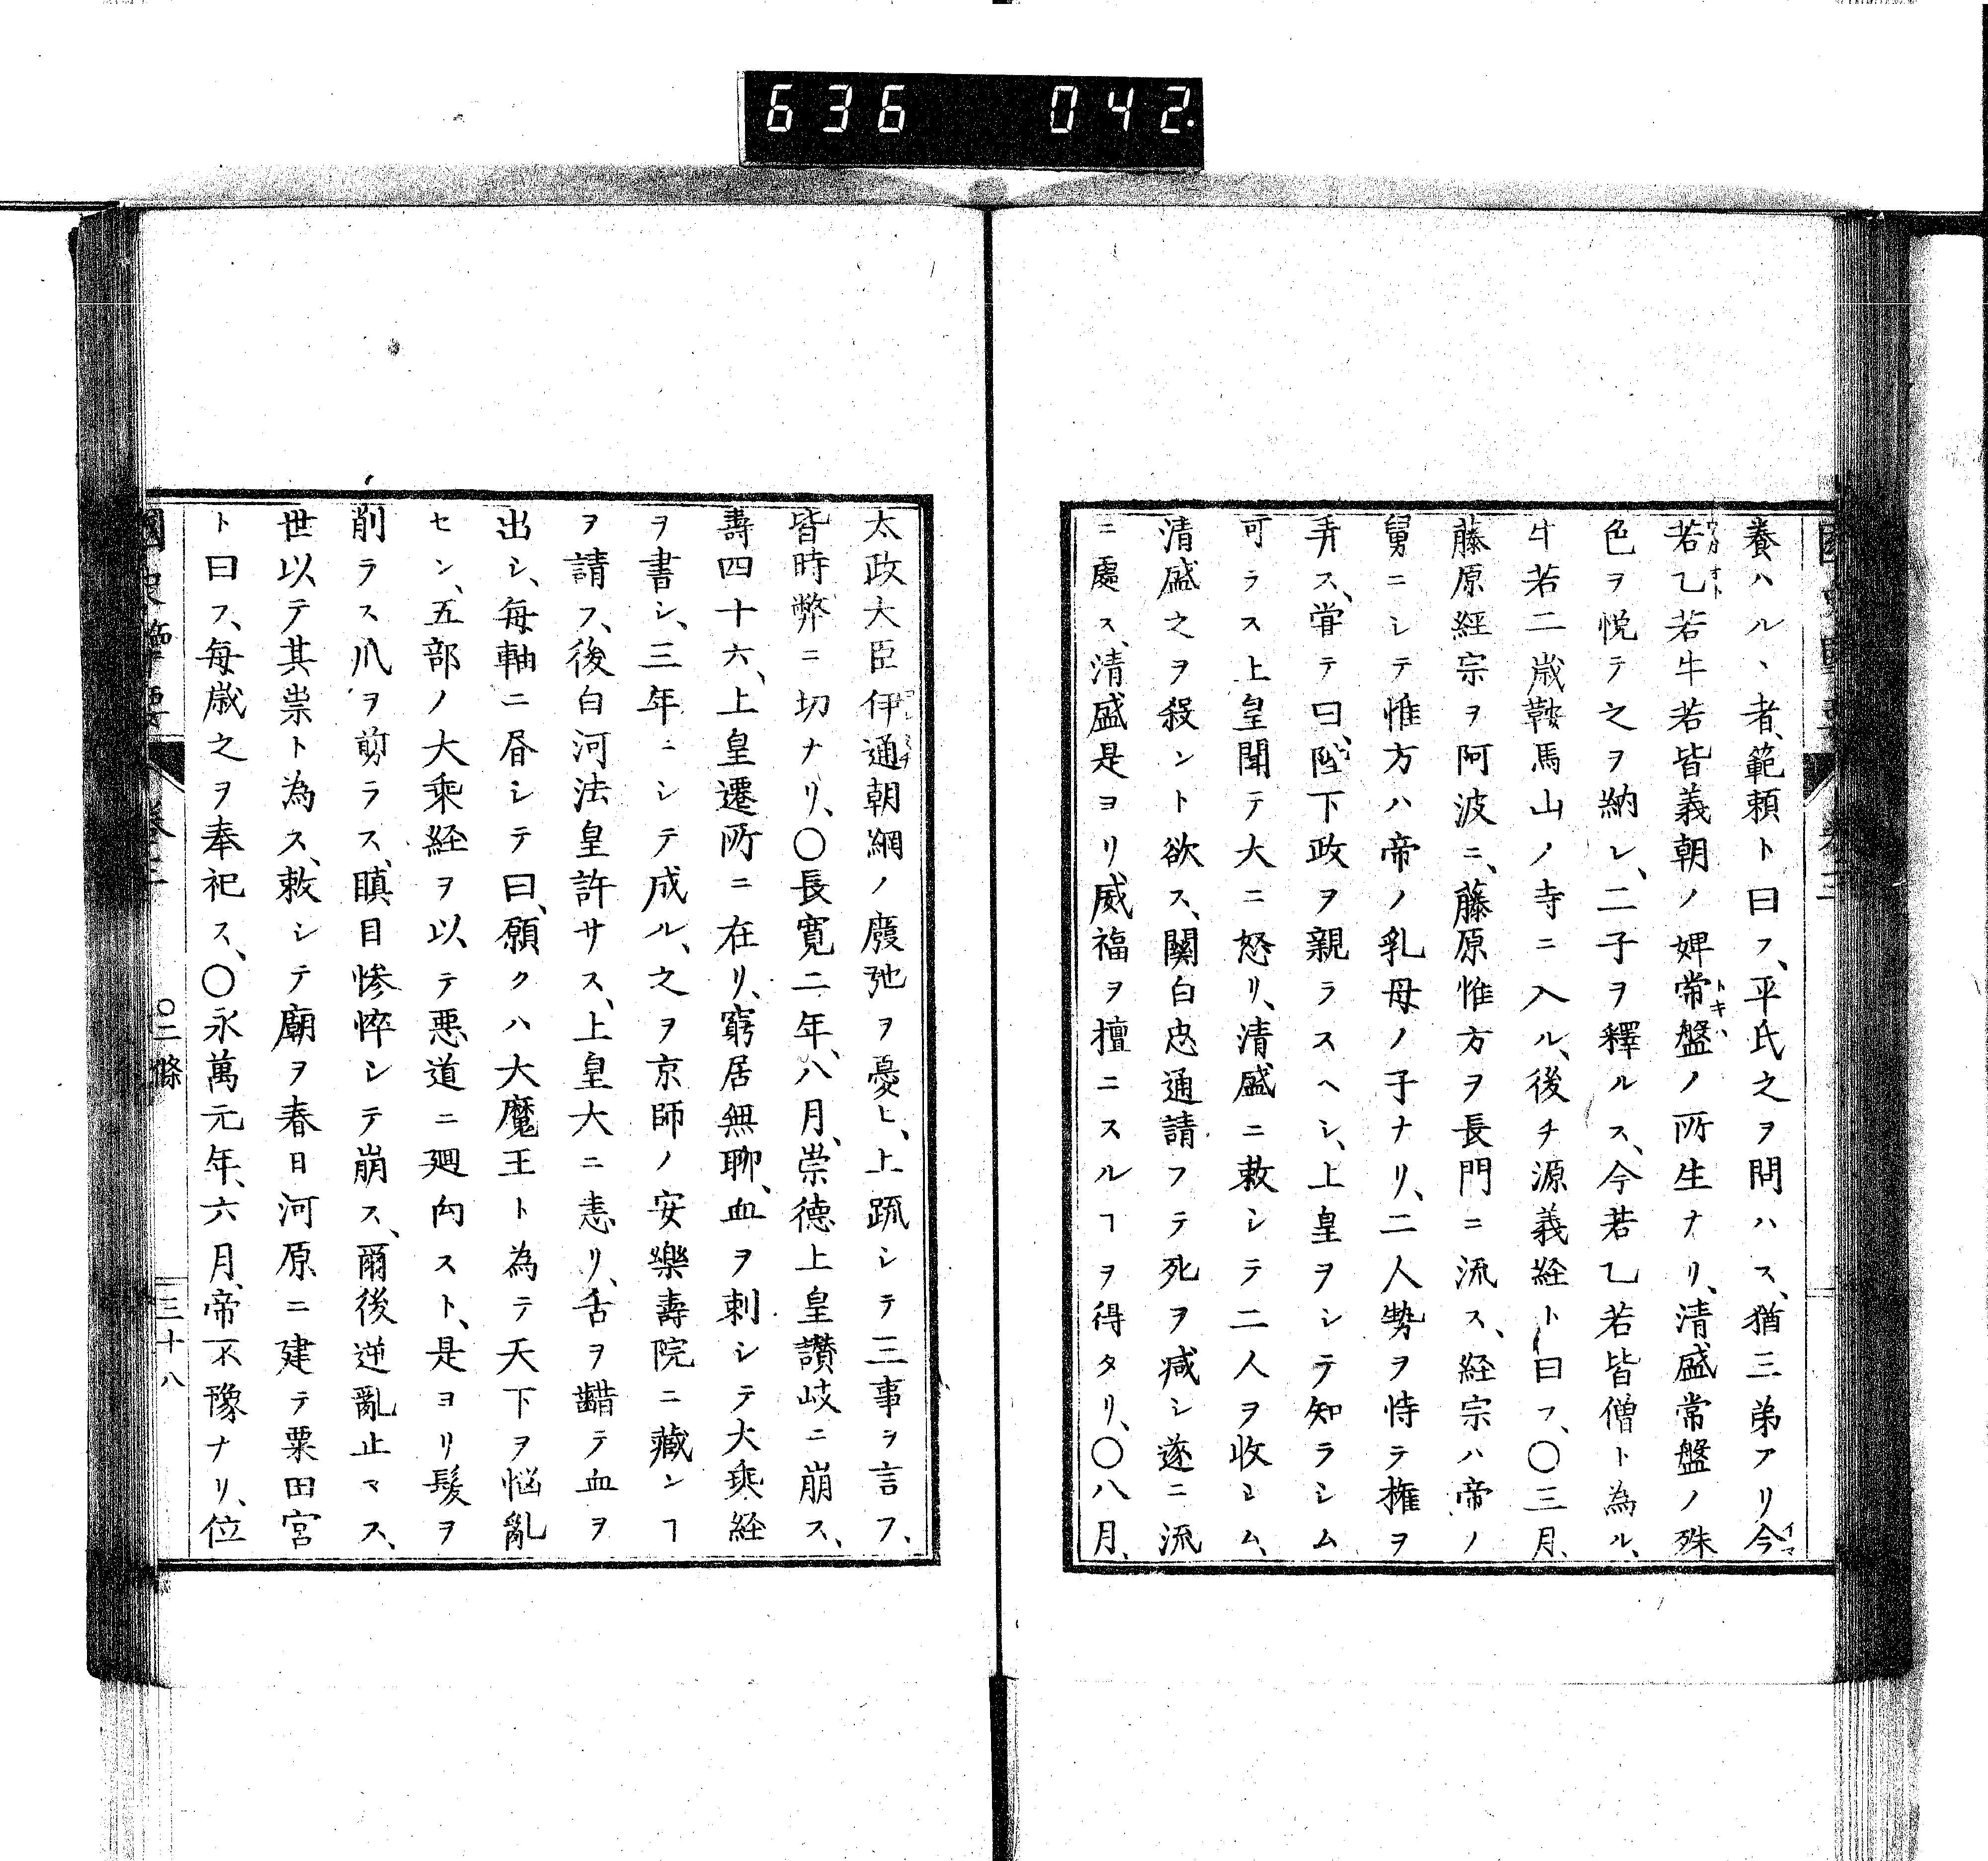 636 042
養ハルヽ者、範頼ト曰フ、平氏之ヲ問ハス、猶三弟アリ今
若乙若牛若皆義朝ノ婢常盤ノ所生ナリ、清盛常盤ノ殊
色ヲ悦テ之ヲ納レ、二子ヲ釋ルス、今若乙若皆僧ト為ル、
牛若二歳鞍馬山ノ寺ニ入ル、後チ源義経ト曰フ、〇三月、
藤原経宗ヲ阿波ニ、藤原惟方ヲ長門ニ流ス、経宗ハ帝ノ
舅ニシテ惟方ハ帝ノ乳母ノ子ナリ、二人勢ヲ恃テ権ヲ
弄ス、甞テ曰、陛下政ヲ親ラスヘシ、上皇ヲシテ知ラシム
可ラス上皇聞テ大ニ怒リ、清盛ニ敕シテ二人ヲ收シム、
清盛之ヲ殺ント欲ス、關白忠通請フテ死ヲ减シ遂ニ流
ニ處ス、清盛是ヨリ威福ヲ擅ニスルヿヲ得タリ、〇八月、
太政大臣伊通朝綱ノ廢弛ヲ憂ヒ、上疏シテ三事ヲ言フ、
皆時弊ニ切ナリ、〇長寛二年、八月、崇德上皇讃岐ニ崩ス、
壽四十六、上皇遷所ニ在リ、窮居無聊、血ヲ刺シテ大乗経
ヲ書シ、三年ニシテ成ル、之ヲ京師ノ安樂壽院ニ藏ンヿ
ヲ請フ、後白河法皇許サス、上皇大ニ恚リ、舌ヲ齰テ血ヲ
出シ、毎軸ニ㫺シテ曰、願クハ大魔王ト為テ天下ヲ惱亂
セン、五部ノ大乘経ヲ以テ悪道ニ廻向スト、是ヨリ髮ヲ
削ラス爪ヲ剪ラス、瞋目惨悴シテ崩ス、爾後逆亂止マス、
世以テ其祟ト為ス、敕シテ廟ヲ春日河原ニ建テ粟田宮
ト曰フ、毎歳之ヲ奉祀ス、〇永萬元年、六月、帝不豫ナリ、位
〇二條 三十八